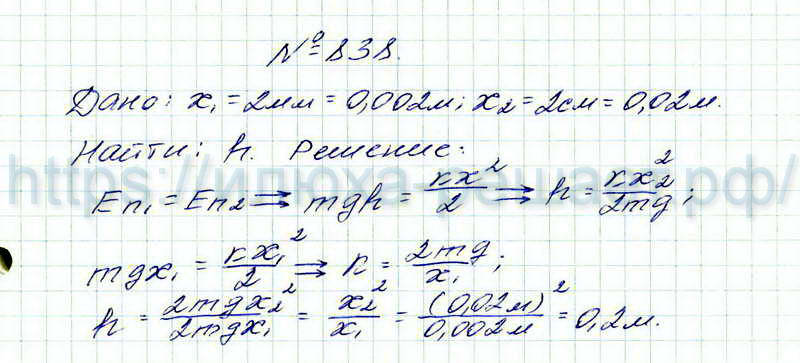 № 838.
Дано: x₁ = 2мм = 0,002м; x₂ = 2см = 0,02м.
Найти: h. Решение:
https://илюха-решает.рф/
Eп₁ = Eп₂ ⇒ mgh = kx²/2 ⇒ h = kx₂²/2mg;
mgx₁ = kx₁²/2 ⇒ k = 2mg/x₁;
h = 2mgx₂²/2mgx₁ = x₂²/x₁ = (0,02м)²/0,002м = 0,2м.